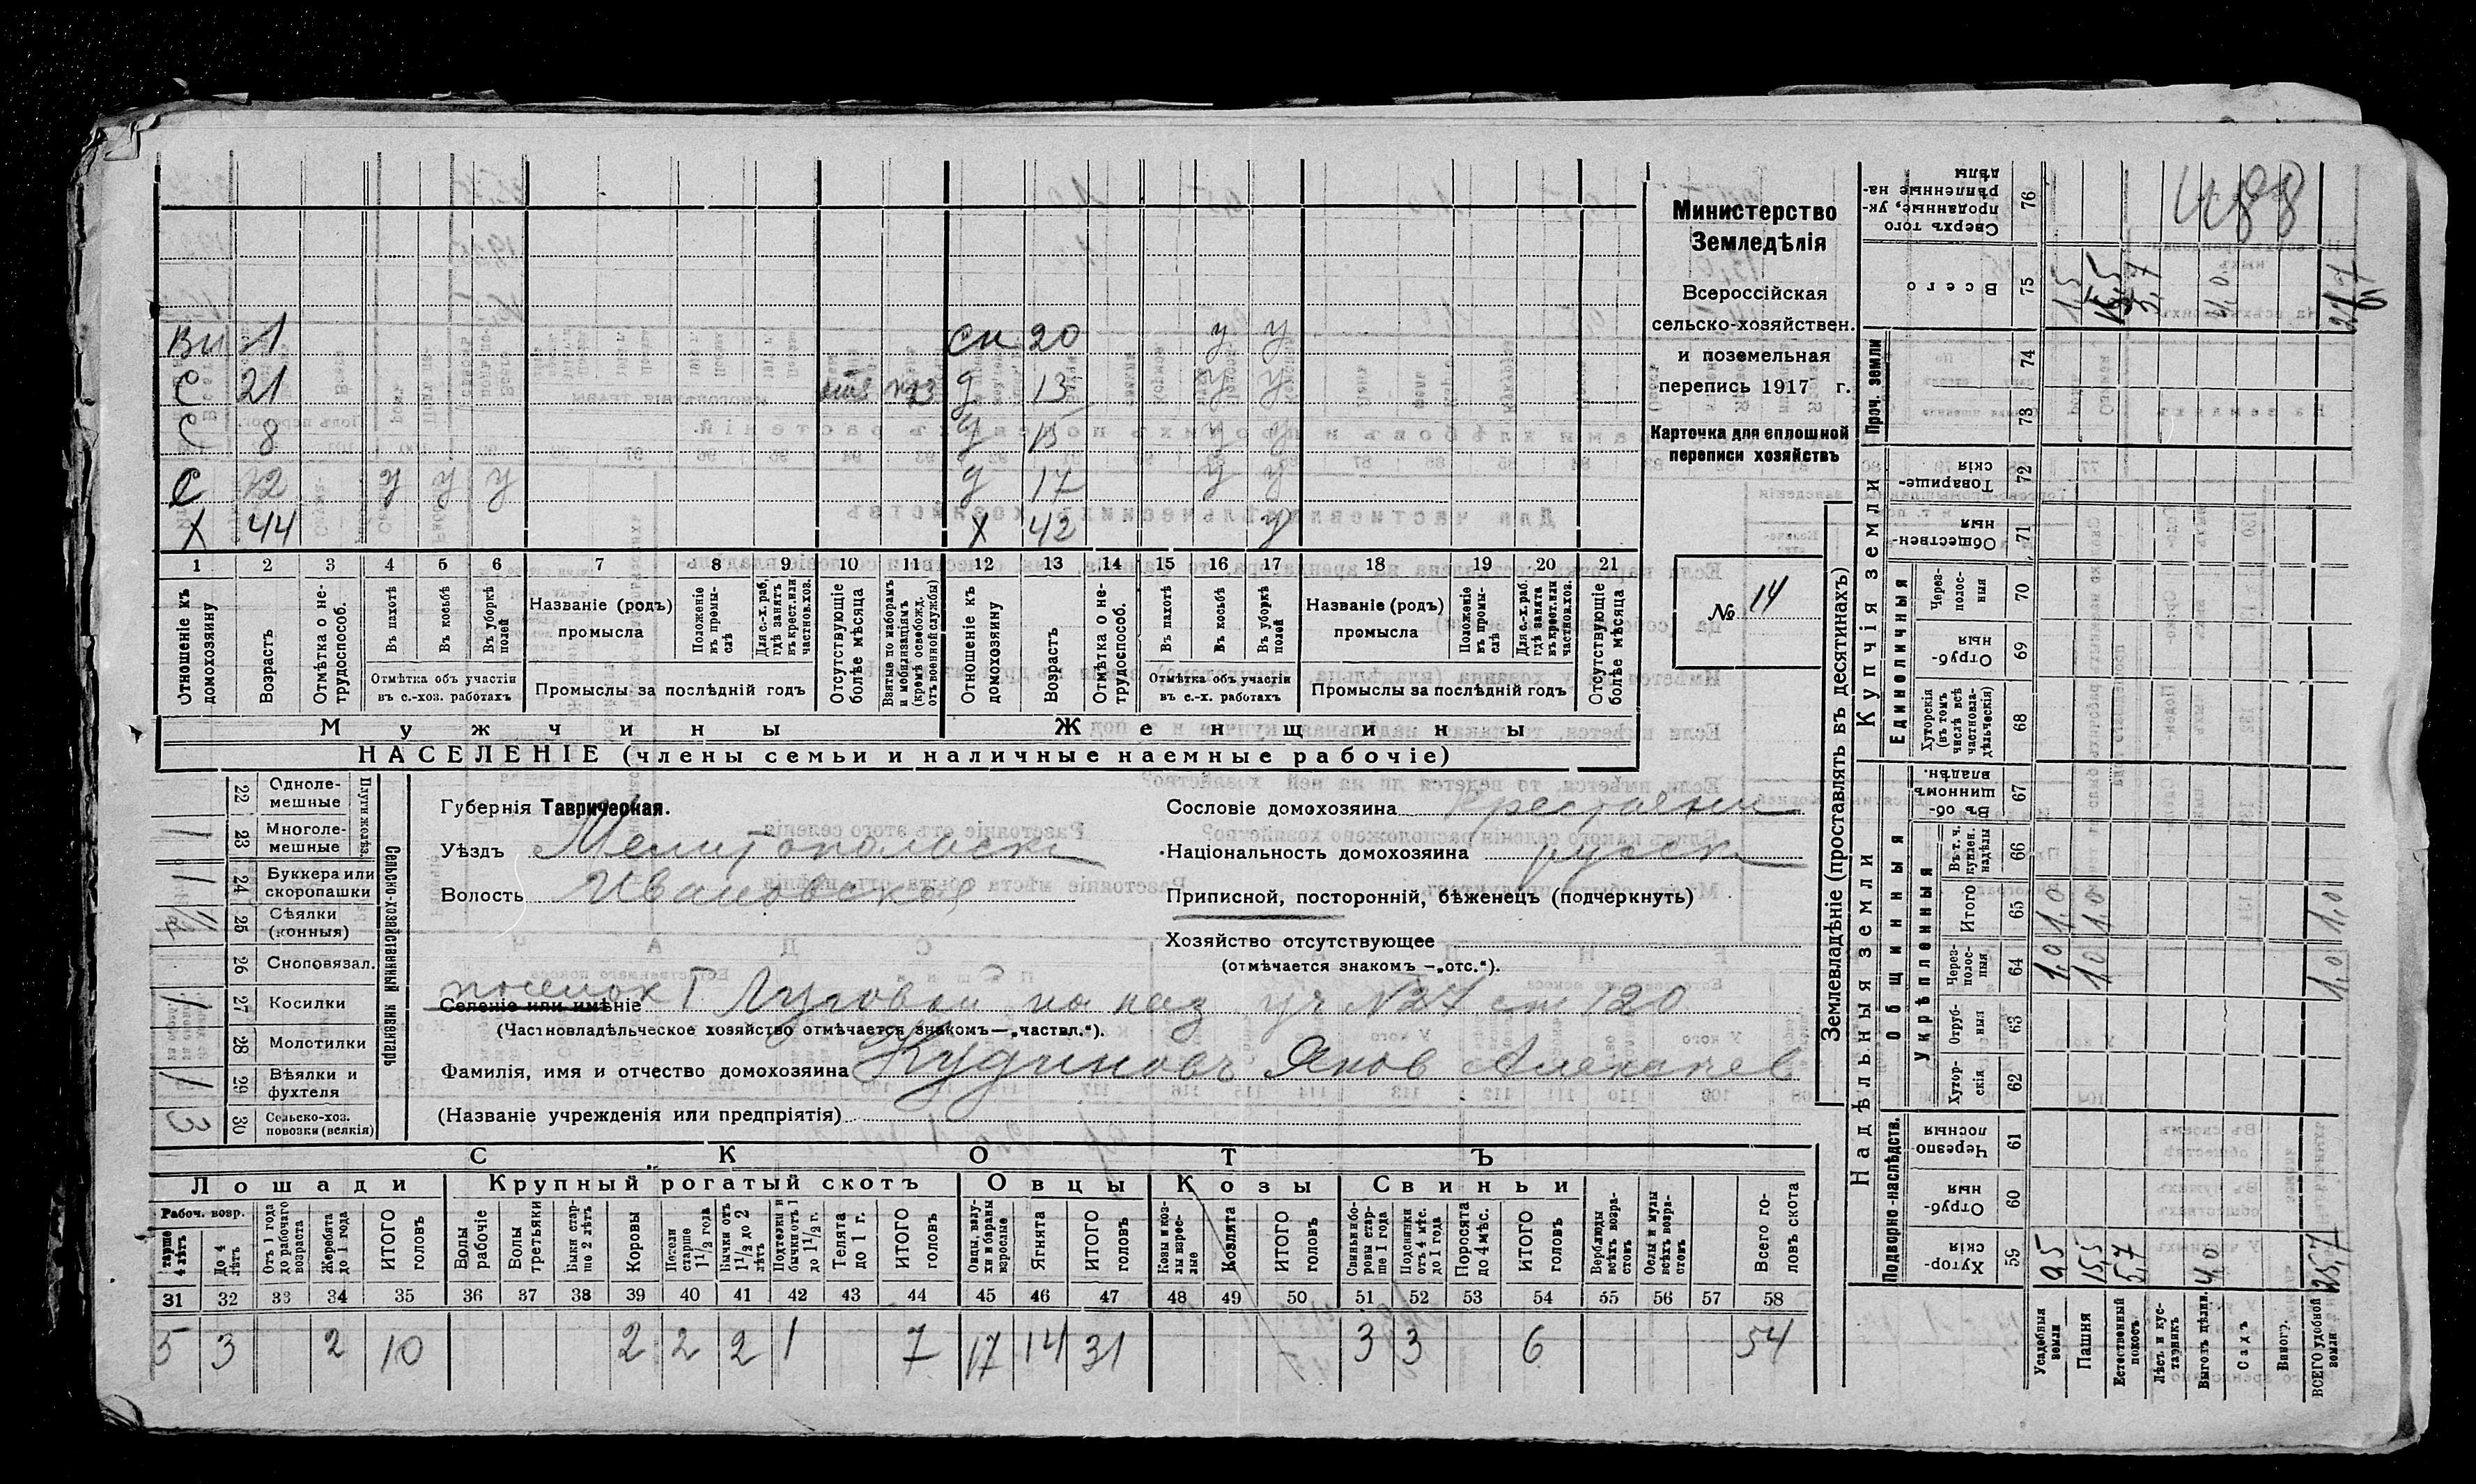 Ви 1 сн 20 у у
С 21 взя д 13 у у
С 8 д 15 у у
С 12 у у у д 17 у у
Х 44 Х 42 у
1 2 3 4 5 6 7 8 9 10 11 12 13 14 15 16 17 18 19 20 21
Отношеніе къ домохозяину
Возрастъ
Отмѣтка о не-трудоспособ.
Въ пахотѣ
Въ косьбѣ
Въ уборкѣ полей
Отмѣтка объ участіи въ с.-хоз. работахъ
Названіе (родъ) промысла
Положеніе въ промы-слѣ
Для с.-х. раб. гдѣ занятъ въ крест. или частнов. хоз.
Промыслы за послѣдній годъ
Отсутствующіе болѣе мѣсяца
Взятые по наборамъ и мобилизаціямъ (кромѣ освобожд. отъ военной службы)
Отношеніе къ домохозяину
Возрастъ
Отмѣтка о не-трудоспособ.
Въ пахотѣ
Въ косьбѣ
Въ уборкѣ полей
Отмѣтка объ участіи въ с.-х. работахъ
Названіе (родъ) промысла
Положеніе въ промы-слѣ
Для с.-х. раб. гдѣ занята въ крест. или частнов. хоз.
Промыслы за послѣдній годъ
Отсутствующіе болѣе мѣсяца
Мужчины Женщины
НАСЕЛЕНІЕ (члены семьи и наличные наемные рабочіе)
Министерство
Земледѣлія
Всероссійская
сельско-хозяйствен.
и поземельная
перепись 1917 г.
Карточка для сплошной
переписи хозяйствъ
№ 14
Сельско-хозяйственный инвентарь
Плуги желѣз.
22 Одноле-мешные
1 23 Многоле-мешные
1 24 Буккера или скоропашки
25 Сѣялки (конныя)
26 Сноповязал.
1 27 Косилки
28 Молотилки
1 29 Вѣялки и фухтеля
3 30 Сельско-хоз. повозки (всякія)
Губернія Таврическая.
Уѣздъ Мелитопольскі
Волость Ивановская
Сословіе домохозяина крестьянин
Національность домохозяина русск
Приписной, посторонній, бѣженецъ (подчеркнуть)
Хозяйство отсутствующее
(отмѣчается знакомъ —„отс.“).
поселок
Селеніе или имѣніе Г Луговой на каз уч № 24 ст 120
(Частновладѣльческое хозяйство отмѣчается знакомъ—„частвл.“).
Фамилія, имя и отчество домохозяина Кудиновъ Яков Алексеев
(Названіе учрежденія или предпріятія)
СКОТЪ
Лошади Крупный рогатый скотъ Овцы Козы Свиньи
Рабоч. возр.
старше 4 лѣтъ
До 4 лѣтъ
Отъ 1 года до рабочаго возраста
Жеребята до 1 года
ИТОГО головъ
Волы рабочіе
Волы третьяки
Быки стар-ше 2 лѣтъ
Коровы
Нетели старше 1 1/2 года
Бычки отъ 1 1/2 до 2 лѣтъ
Подтелки и бычки отъ 1 до 1 1/2 г.
Телята до 1 г.
ИТОГО головъ
Овцы, валу-хи и бараны взрослые
Ягнята
ИТОГО головъ
Козы и коз-лы взрос-лые
Козлята
ИТОГО головъ
Свиньи и бо-ровы стар-ше 1 года
Подсвинки отъ 4 мѣс. до 1 года
Поросята до 4 мѣс.
ИТОГО головъ
Верблюды всѣхъ возра-стовъ
Ослы и мулы всѣхъ возра-стовъ
Всего го-ловъ скота
31 32 33 34 35 36 37 38 39 40 41 42 43 44 45 46 47 48 49 50 51 52 53 54 55 56 57 58
5 3 2 10 2 2 2 1 7 17 14 31 3 3 6 54
Землевладѣніе (проставлять въ десятинахъ)
Надѣльныя земли Купчія земли Проч. земли
Подворно-наслѣдств. Общинныя Единоличныя
Укрѣпленныя
59 Хутор-скія
60 Отруб-ныя
61 Черезпо лосныя
62 Хутор-скія
63 Отруб-ныя
64 Через-полос-ныя
65 Итого
66 Въ т. ч. куплен. надѣлы
67 Въ об-щинномъ владѣн.
68 Хуторскія (въ томъ числѣ всѣ частновла-дѣльческія)
69 Отруб-ныя
70 Через-полос-ныя
71 Обществен-ныя
72 Товарище-скія
73
74
75 Всего
76 Сверхъ того проданные, ук-рѣпленные на-дѣлы
Усадебныя земли 0,5 1,0 1,0 1,5
Пашня 15,5 1,0 1,0
Естественный покосъ 5,7 5,7
Лѣсъ и кус-тарникъ
Выгонъ цѣлин. 4,0 4,0
Садъ
Виногр.
ВСЕГО удобной земли 25,7 1,0 1,0
488